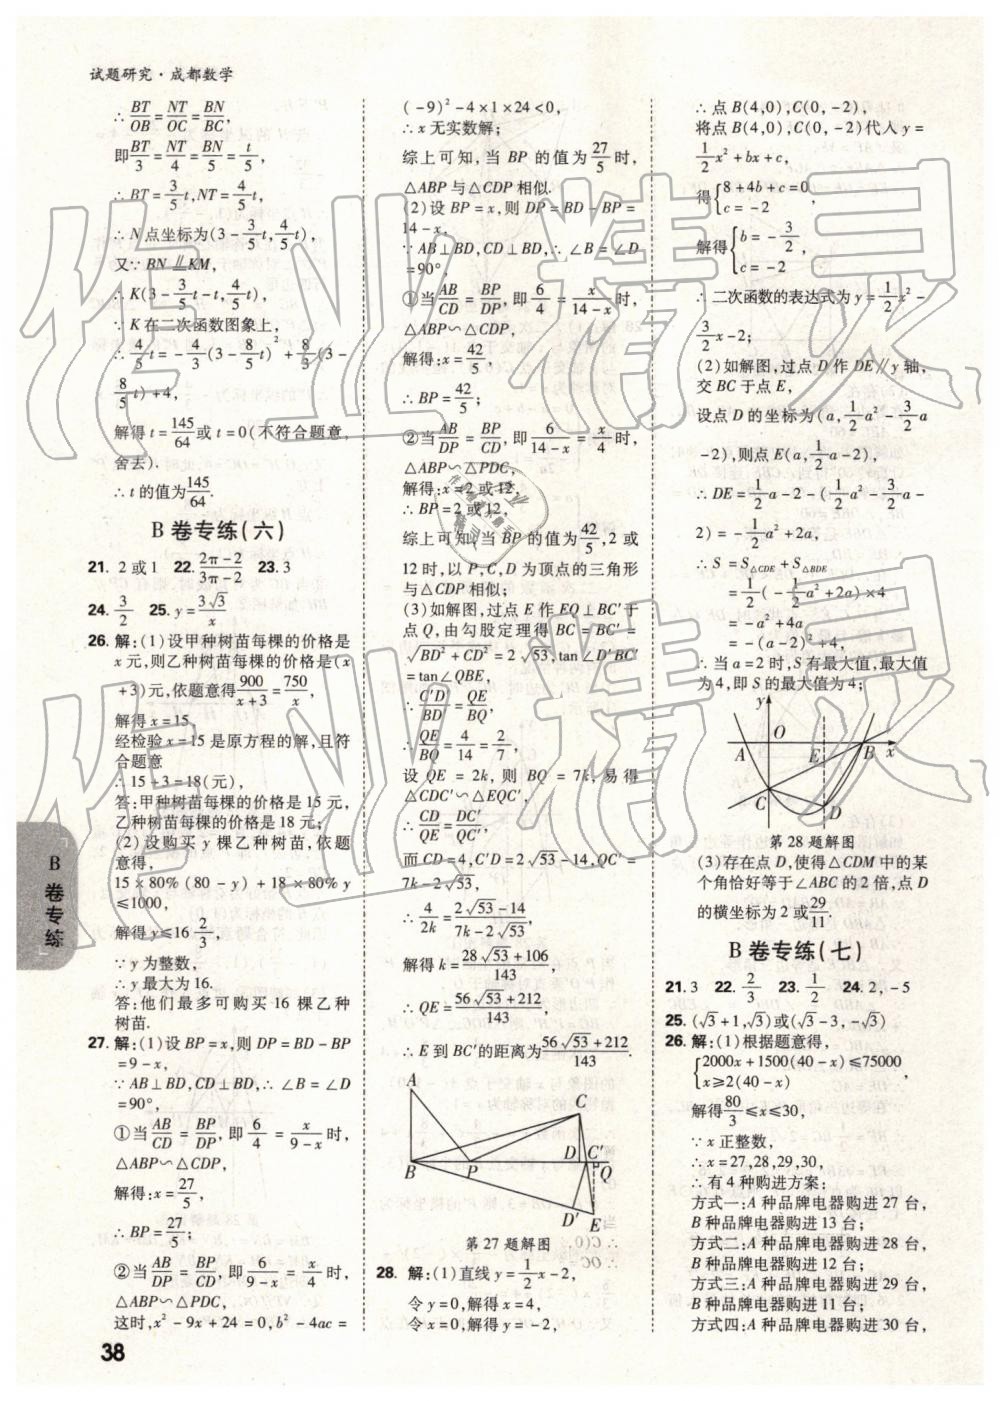 试题研究·成都数学
∴ BT/OB = NT/OC = BN/BC,
即 BT/3 = NT/4 = BN/5 = t/5,
∴ BT = 3/5 t, NT = 4/5 t,
∴ N 点坐标为(3 - 3/5 t, 4/5 t),
又∵ BN ∥ KM,
∴ K(3 - 3/5 t - t, 4/5 t),
∵ K 在二次函数图象上,
∴ 4/5 t = -4/3 (3 - 8/5 t)² + 8/3 (3 -
8/5 t) + 4,
解得 t = 145/64 或 t = 0(不符合题意,
舍去).
∴ t 的值为 145/64.
B 卷专练(六)
21. 2 或 1 22. (2π - 2)/(3π - 2) 23. 3
24. 3/2 25. y = 3√3/x
26. 解:(1)设甲种树苗每棵的价格是
x 元,则乙种树苗每棵的价格是(x
+3)元,依题意得 900/(x + 3) = 750/x,
解得 x = 15,
经检验 x = 15 是原方程的解,且符
合题意
∴ 15 + 3 = 18(元),
答:甲种树苗每棵的价格是 15 元,
乙种树苗每棵的价格是 18 元;
(2)设购买 y 棵乙种树苗,依题
意得,
15 × 80% (80 - y) + 18 × 80% y
≤1000,
解得 y≤16 2/3,
∵ y 为整数,
∴ y 最大为 16.
答:他们最多可购买 16 棵乙种
树苗.
27. 解:(1)设 BP = x,则 DP = BD - BP
= 9 - x,
∵ AB⊥BD, CD⊥BD, ∴ ∠B = ∠D =
90°,
①当 AB/CD = BP/DP, 即 6/4 = x/(9 - x) 时,
△ABP∽△CDP,
解得:x = 27/5,
∴ BP = 27/5;
②当 AB/DP = BP/CD, 即 6/(9 - x) = x/4 时,
△ABP∽△PDC,
这时,x² - 9x + 24 = 0, b² - 4ac =
38
B
卷
专
练
(-9)² - 4 × 1 × 24 < 0,
∴ x 无实数解;
综上可知,当 BP 的值为 27/5 时,
△ABP 与 △CDP 相似.
(2)设 BP = x,则 DP = BD - BP =
14 - x,
∵ AB⊥BD, CD⊥BD, ∴ ∠B = ∠D
= 90°,
①当 AB/CD = BP/DP, 即 6/4 = x/(14 - x) 时,
△ABP∽△CDP,
解得:x = 42/5,
∴ BP = 42/5;
②当 AB/DP = BP/CD, 即 6/(14 - x) = x/4 时,
△ABP∽△PDC,
解得:x = 2 或 12,
∴ BP = 2 或 12,
综上可知,当 BP 的值为 42/5, 2 或
12 时,以 P, C, D 为顶点的三角形
与△CDP 相似;
(3)如解图,过点 E 作 EQ⊥BC′于
点 Q,由勾股定理得 BC = BC′ =
√(BD² + CD²) = 2√53, tan∠D′BC′
= tan∠QBE,
∴ C′D′/BD′ = QE/BQ,
∴ QE/BQ = 4/14 = 2/7,
设 QE = 2k, 则 BQ = 7k, 易得
△CDC′∽△EQC′,
∴ CD/QE = DC′/QC′,
而 CD = 4, C′D = 2√53 - 14, QC′ =
7k - 2√53,
∴ 4/2k = (2√53 - 14)/(7k - 2√53),
解得 k = (28√53 + 106)/143,
∴ QE = (56√53 + 212)/143,
∴ E 到 BC′的距离为 (56√53 + 212)/143.
A
C
B P D C′ Q
D′ E
第 27 题解图
28. 解:(1)直线 y = 1/2 x - 2,
令 y = 0,解得 x = 4,
令 x = 0,解得 y = -2,
∴ 点 B(4,0), C(0, -2),
将点 B(4,0), C(0, -2)代入 y =
1/2 x² + bx + c,
得 {8 + 4b + c = 0, c = -2
解得 {b = -3/2, c = -2
∴ 二次函数的表达式为 y = 1/2 x² -
3/2 x - 2;
(2)如解图,过点 D 作 DE∥y 轴,
交 BC 于点 E,
设点 D 的坐标为(a, 1/2 a² - 3/2 a
- 2),则点 E(a, 1/2 a - 2),
∴ DE = 1/2 a - 2 - (1/2 a² - 3/2 a -
2) = -1/2 a² + 2a,
∴ S = S△CDE + S△BDE
= 1/2 (-1/2 a² + 2a) × 4
= -a² + 4a
= -(a - 2)² + 4,
∴ 当 a = 2 时, S 有最大值,最大值
为 4,即 S 的最大值为 4;
y
A O E B x
C
D
第 28 题解图
(3)存在点 D,使得△CDM 中的某
个角恰好等于∠ABC 的 2 倍,点 D
的横坐标为 2 或 29/11.
B 卷专练(七)
21. 3 22. 2/3 23. 1/2 24. 2, -5
25. (√3 + 1, √3)或(√3 - 3, -√3)
26. 解:(1)根据题意得,
{2000x + 1500(40 - x)≤75000
x≥2(40 - x)
解得 80/3≤x≤30,
∵ x 正整数,
∴ x = 27, 28, 29, 30,
∴ 有 4 种购进方案:
方式一:A 种品牌电器购进 27 台,
B 种品牌电器购进 13 台;
方式二:A 种品牌电器购进 28 台,
B 种品牌电器购进 12 台;
方式三:A 种品牌电器购进 29 台,
B 种品牌电器购进 11 台;
方式四:A 种品牌电器购进 30 台,
作业精灵
作业精灵